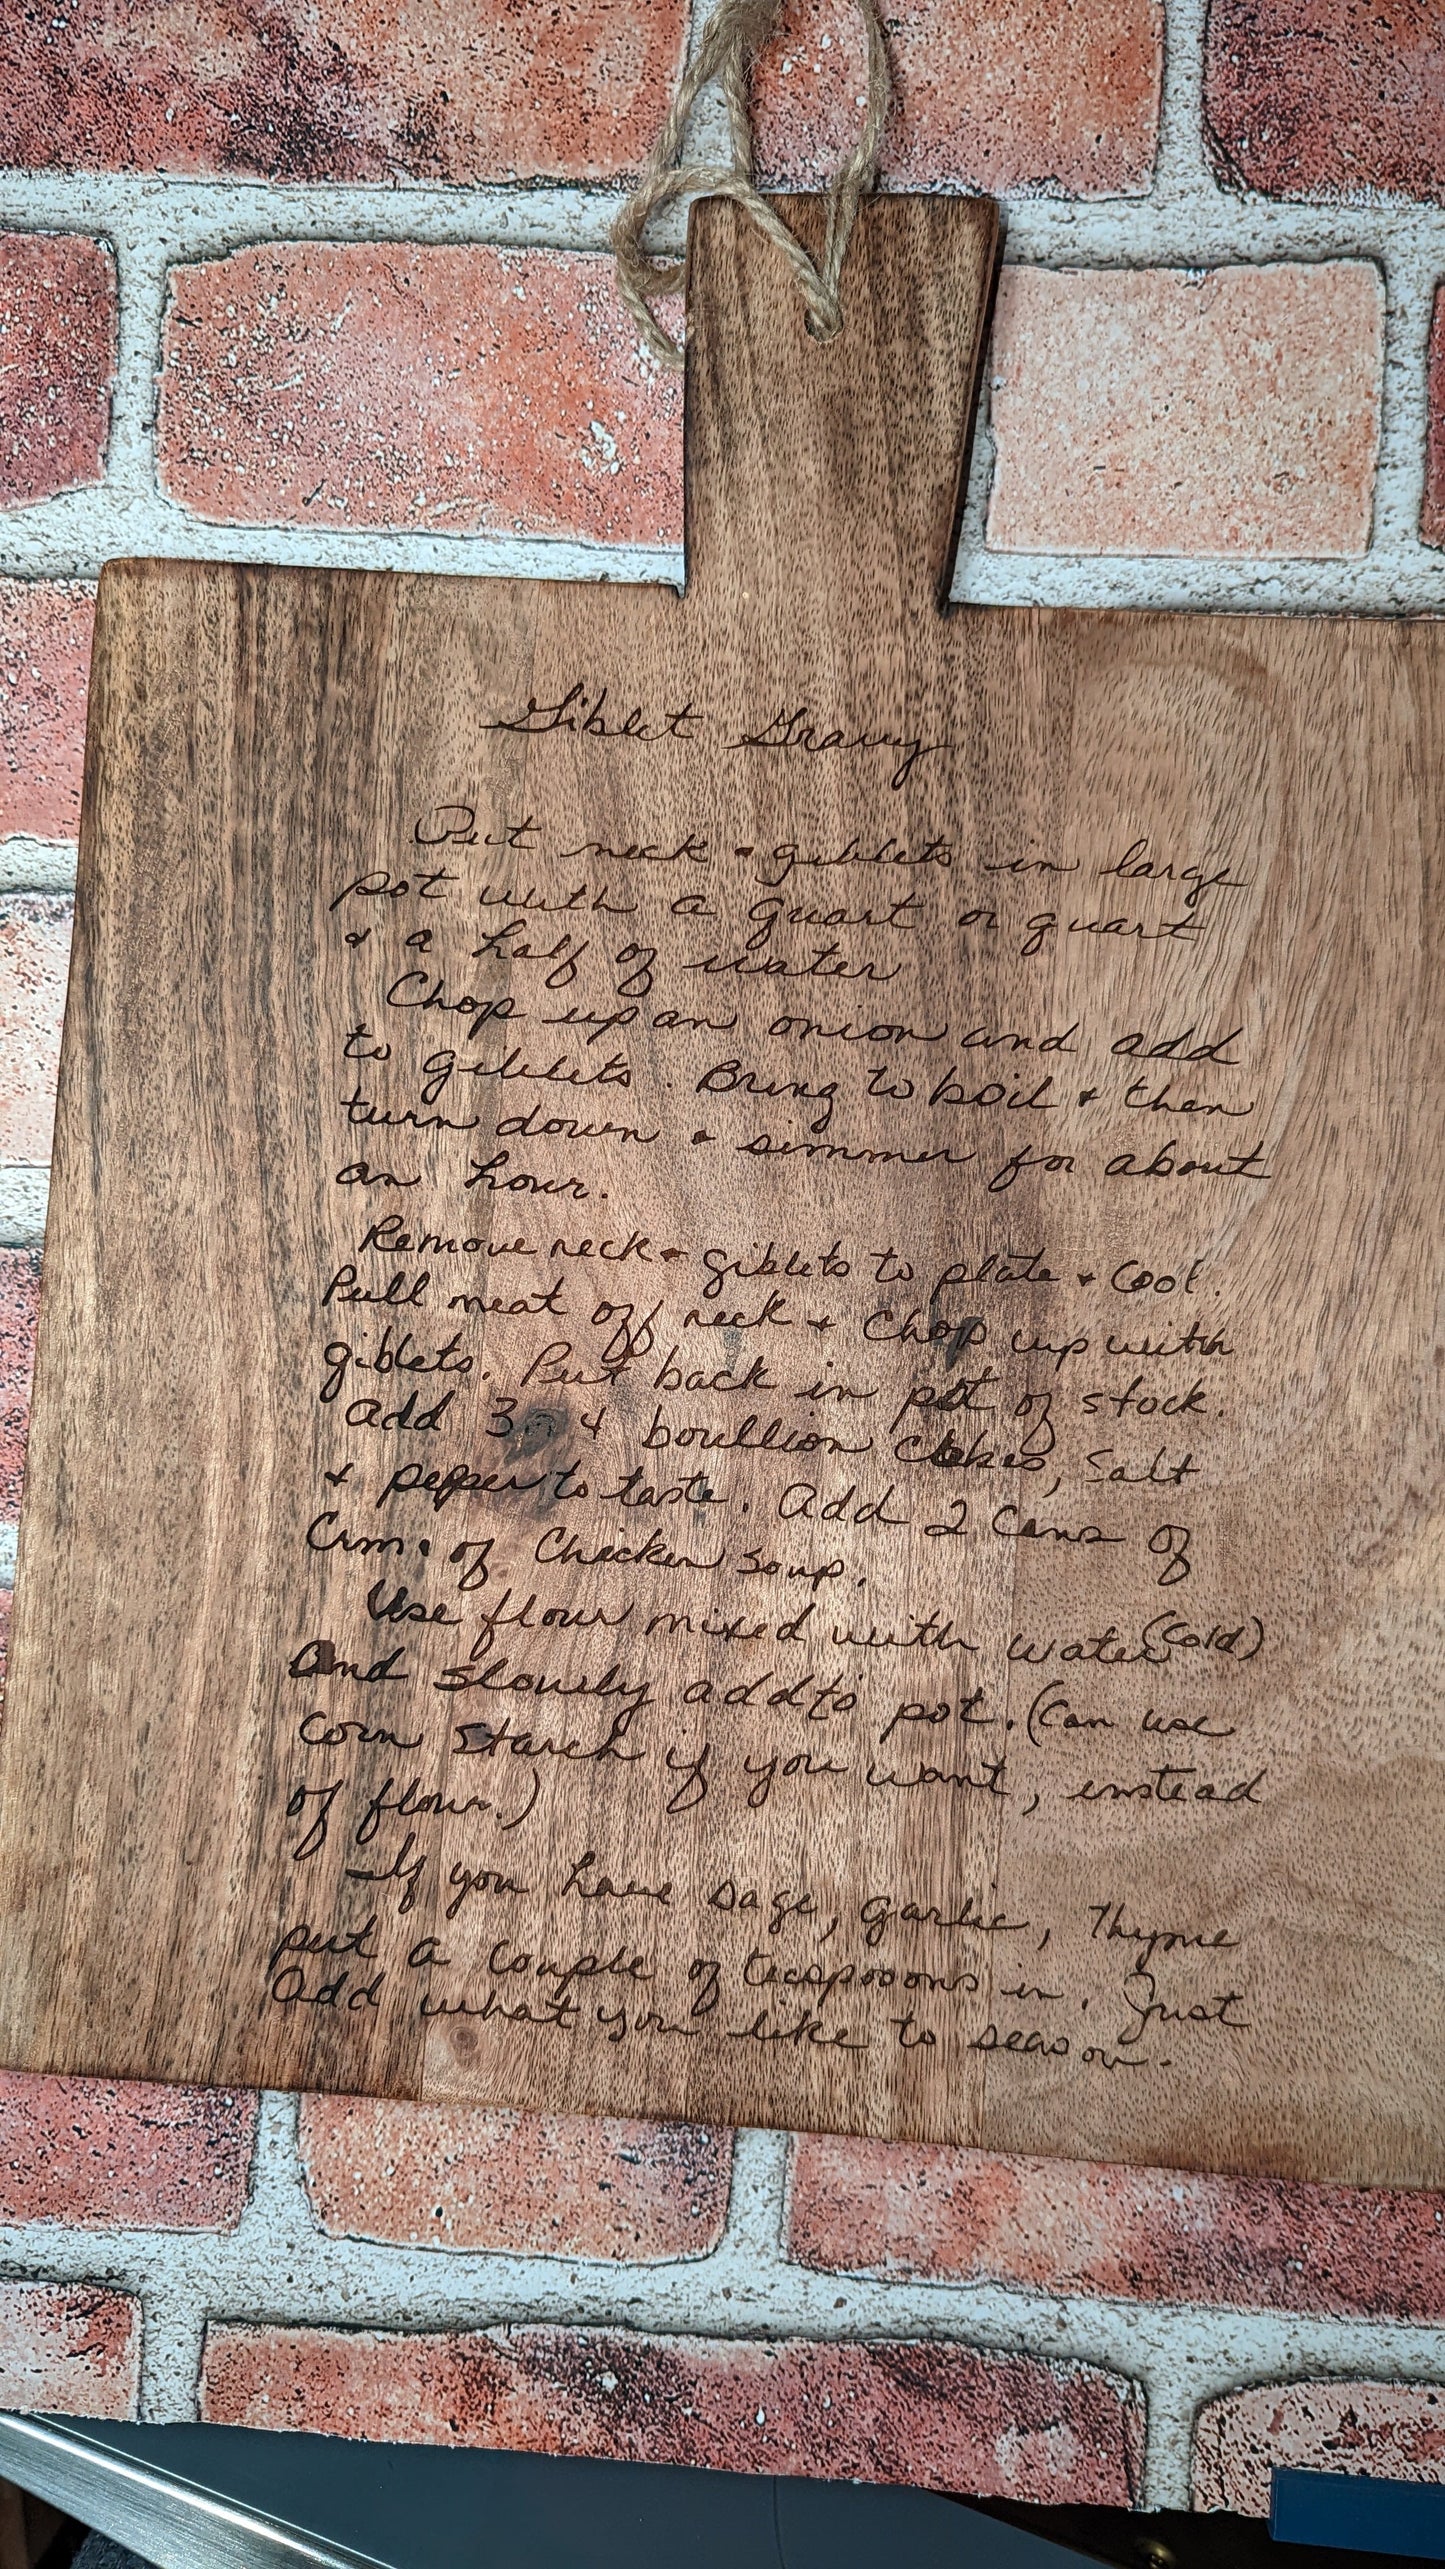 Giblet Gravy
Put neck & giblets in large
pot with a quart or quart
& a half of water
Chop up an onion and add
to giblets. Bring to boil & then
turn down & simmer for about
an hour.
Remove neck & giblets to plate & cool.
Pull meat off neck & chop up with
giblets. Put back in pot of stock.
Add 3 or 4 boullion cubes, salt
& pepper to taste. Add 2 cans of
Crm. of Chicken soup.
Use flour mixed with water (cold)
and slowly add to pot. (Can use
corn starch if you want, instead
of flour.)
If you have sage, garlic, thyme
put a couple of teaspooons in. Just
add what you like to season.